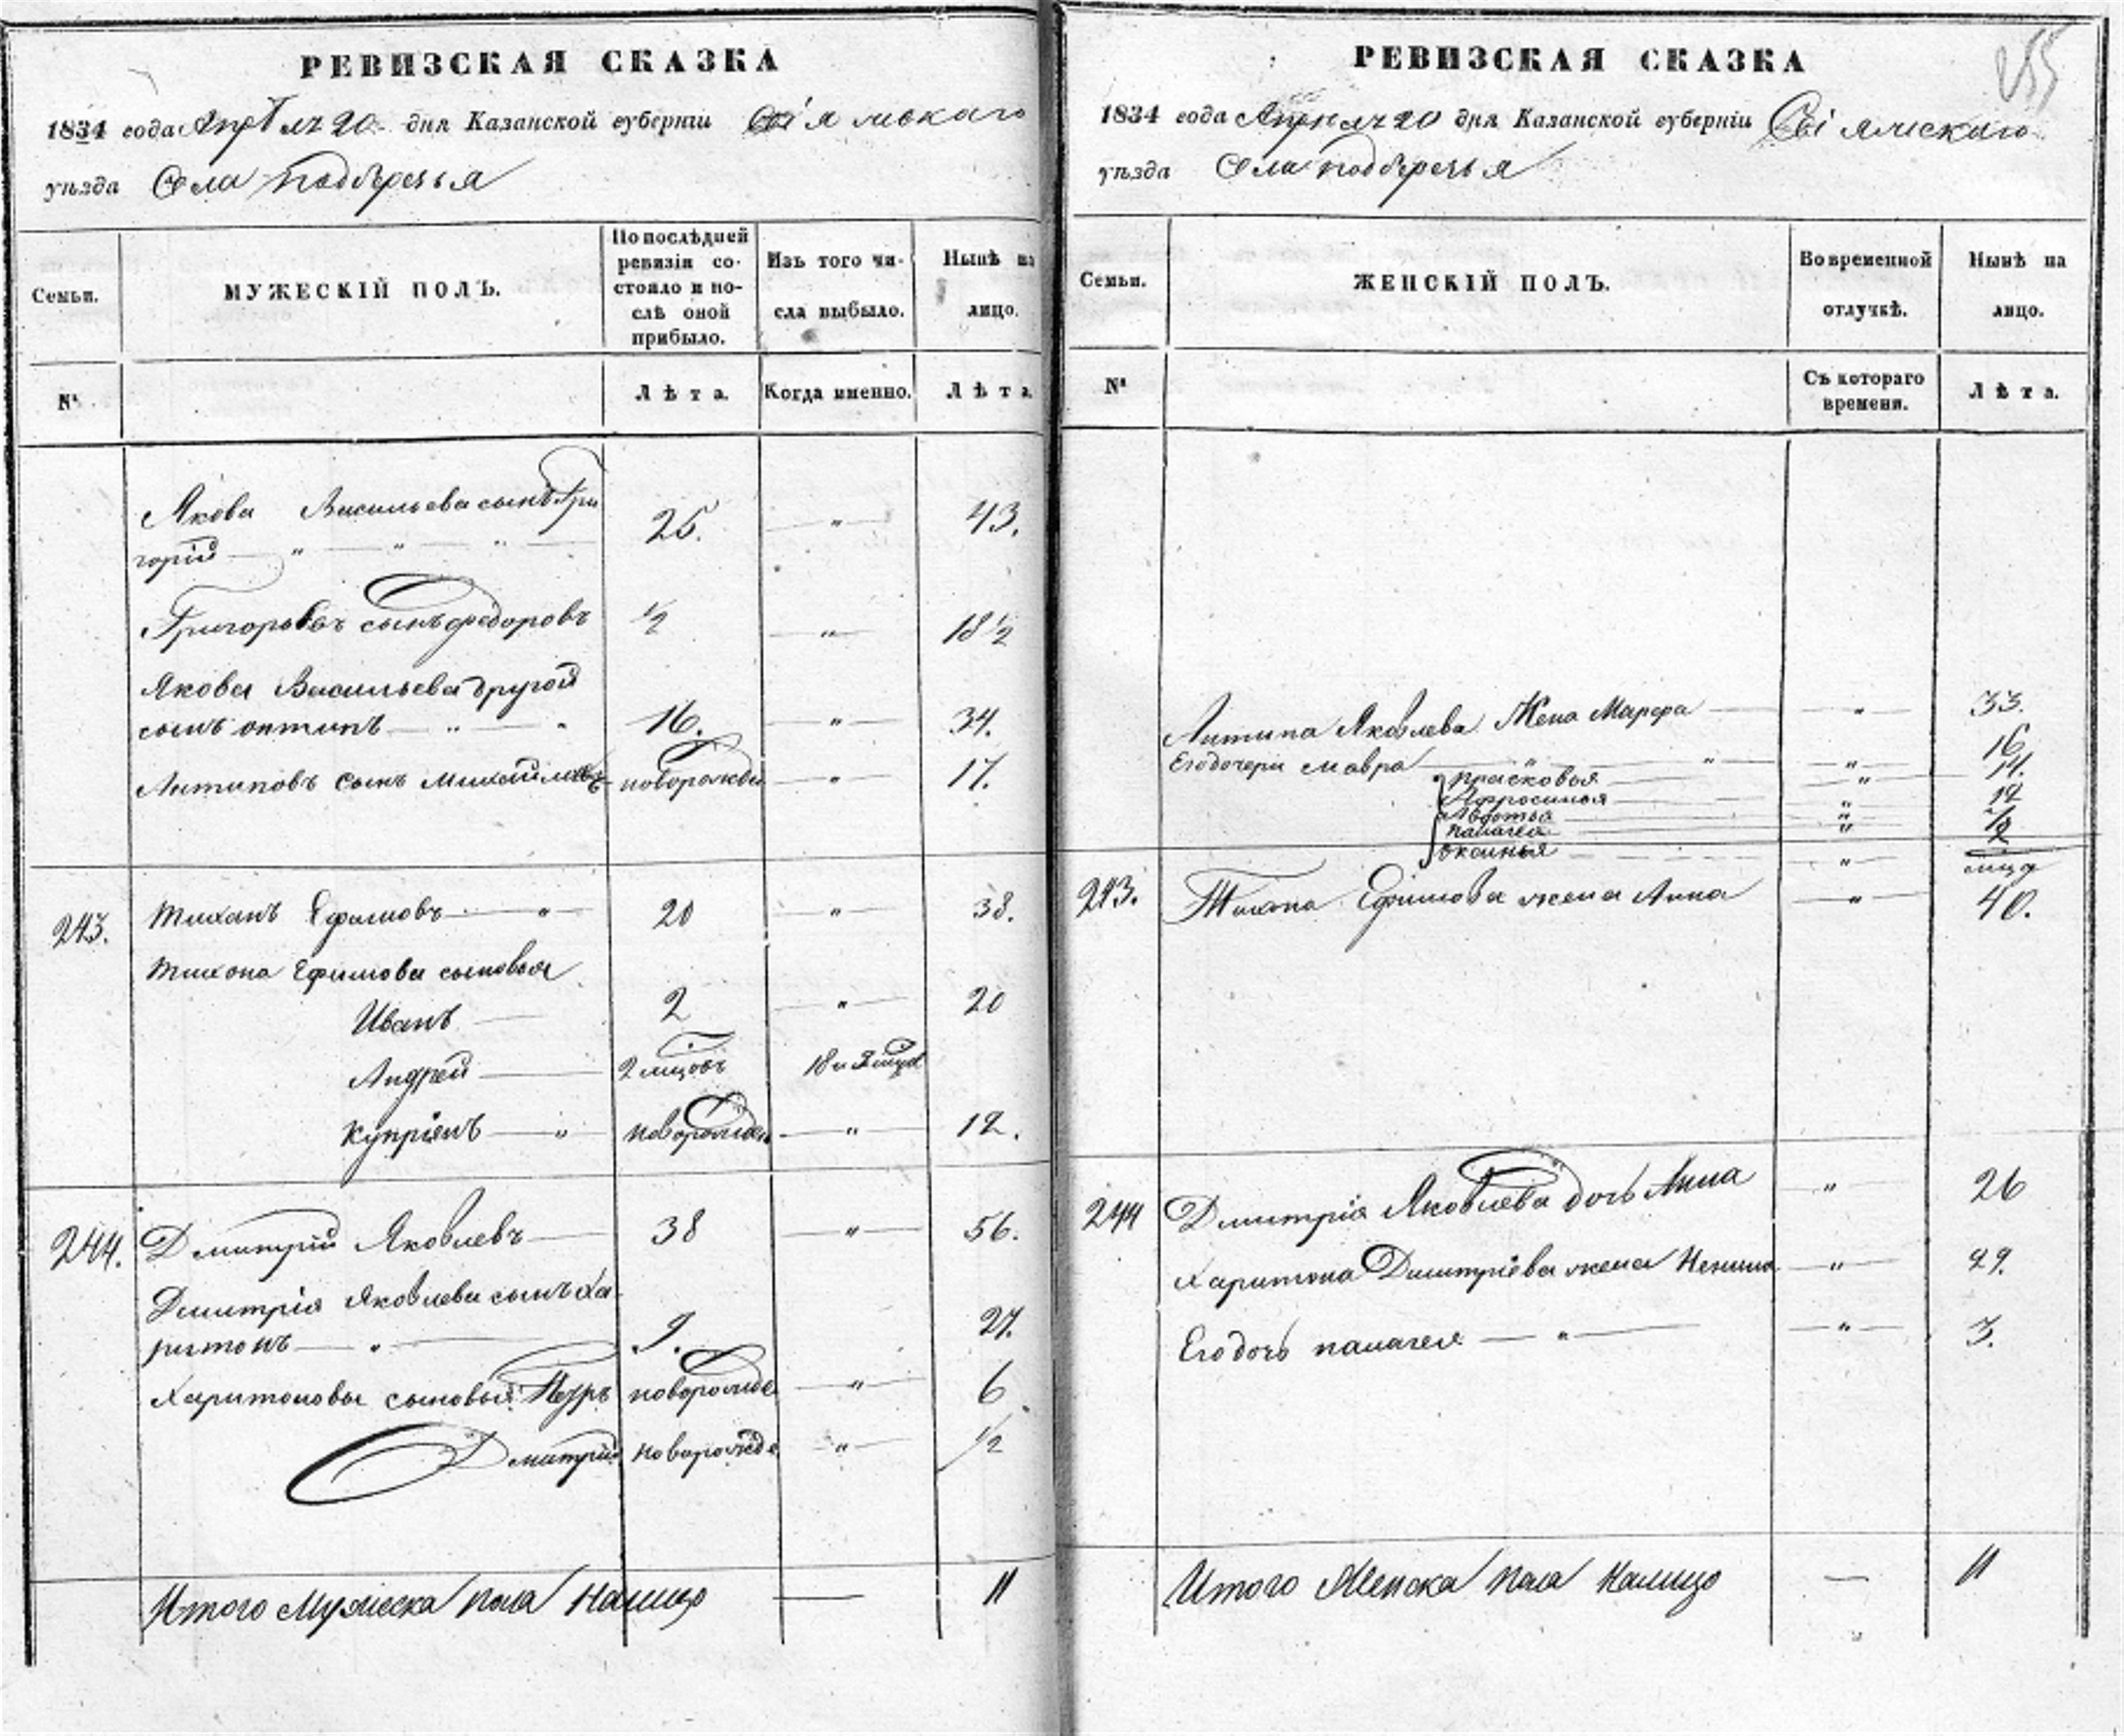 РЕВИЗСКАЯ СКАЗКА
1834 года Апрѣля 20 дня Казанской губерніи Свіяжскаго
уѣзда Села подберезья
Семьи.
МУЖЕСКІЙ ПОЛЪ.
По послѣдней
ревизіи со-
стояло и по-
слѣ оной
прибыло.
Изъ того чи-
сла выбыло.
Нынѣ на
лицо.
№
Лѣта.
Когда именно.
Лѣта.
Якова Васильева сынъ Гри 25. " 43.
горій " " "
Григорьевъ сынъ федоровъ 1/2 " 18 1/2
Якова Васильева другой
сынъ онтипъ " " 16. " 34.
Антиповъ сынъ новорожден " 17.
243. Тиханъ Ефимовъ " 20 " 38.
Тихона Ефимова сыновья
Иванъ 2 " 20
Андрей 2 мцовъ
Купріянъ " новорожден " 12.
244. Дмитрій Яковлевъ 38 " 56.
Дмитрія Яковлева сынъ Ха
ритонъ " 9. 27.
Харитоновы сыновья Петръ новорожде " 6
Дмитрій новорожде " 1/2
Итого Мужеска пола На лицо — 11
РЕВИЗСКАЯ СКАЗКА
1834 года Апреля 20 дня Казанской губерніи Свіяжскаго
уѣзда Села подберезья
Семьи.
ЖЕНСКІЙ ПОЛЪ.
Во временной
отлучкѣ.
Нынѣ на
лицо.
№
Съ котораго
времени.
Лѣта.
Антипа Яковлева Жена Марфа " 33.
Его дочери мавра " " 16
прасковья " 14.
Афросинья " 12
Авдотья "
палагея "
оксинья "
243. Тихона Ефимова жена Анна " 40.
244 Дмитрія Яковлева дочь Анна " 26
Харитона Дмитріева жена " 29.
Его дочь палагея " " 3.
Итого Женска пола На лицо — 11